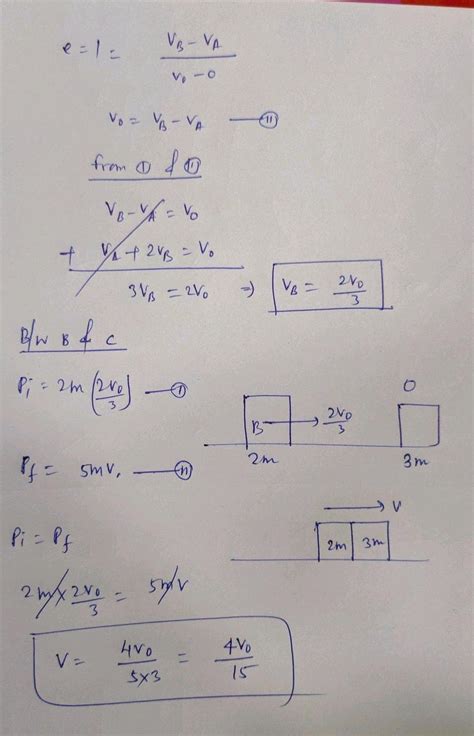 e = 1 = (V_B - V_A) / (v_0 - 0)
v_0 = V_B - V_A —— (II)
from (I) & (II)
V_B - V_A = V_0
+ V_A + 2V_B = V_0
3V_B = 2V_0 => V_B = 2V_0 / 3
B/w B & C
P_i = 2m (2V_0 / 3) —— (I)
B → 2V_0 / 3
O
2m 3m
P_f = 5mV, —— (II)
→ V
2m 3m
P_i = P_f
2m × 2V_0 / 3 = 5mV
V = 4V_0 / 5×3 = 4V_0 / 15